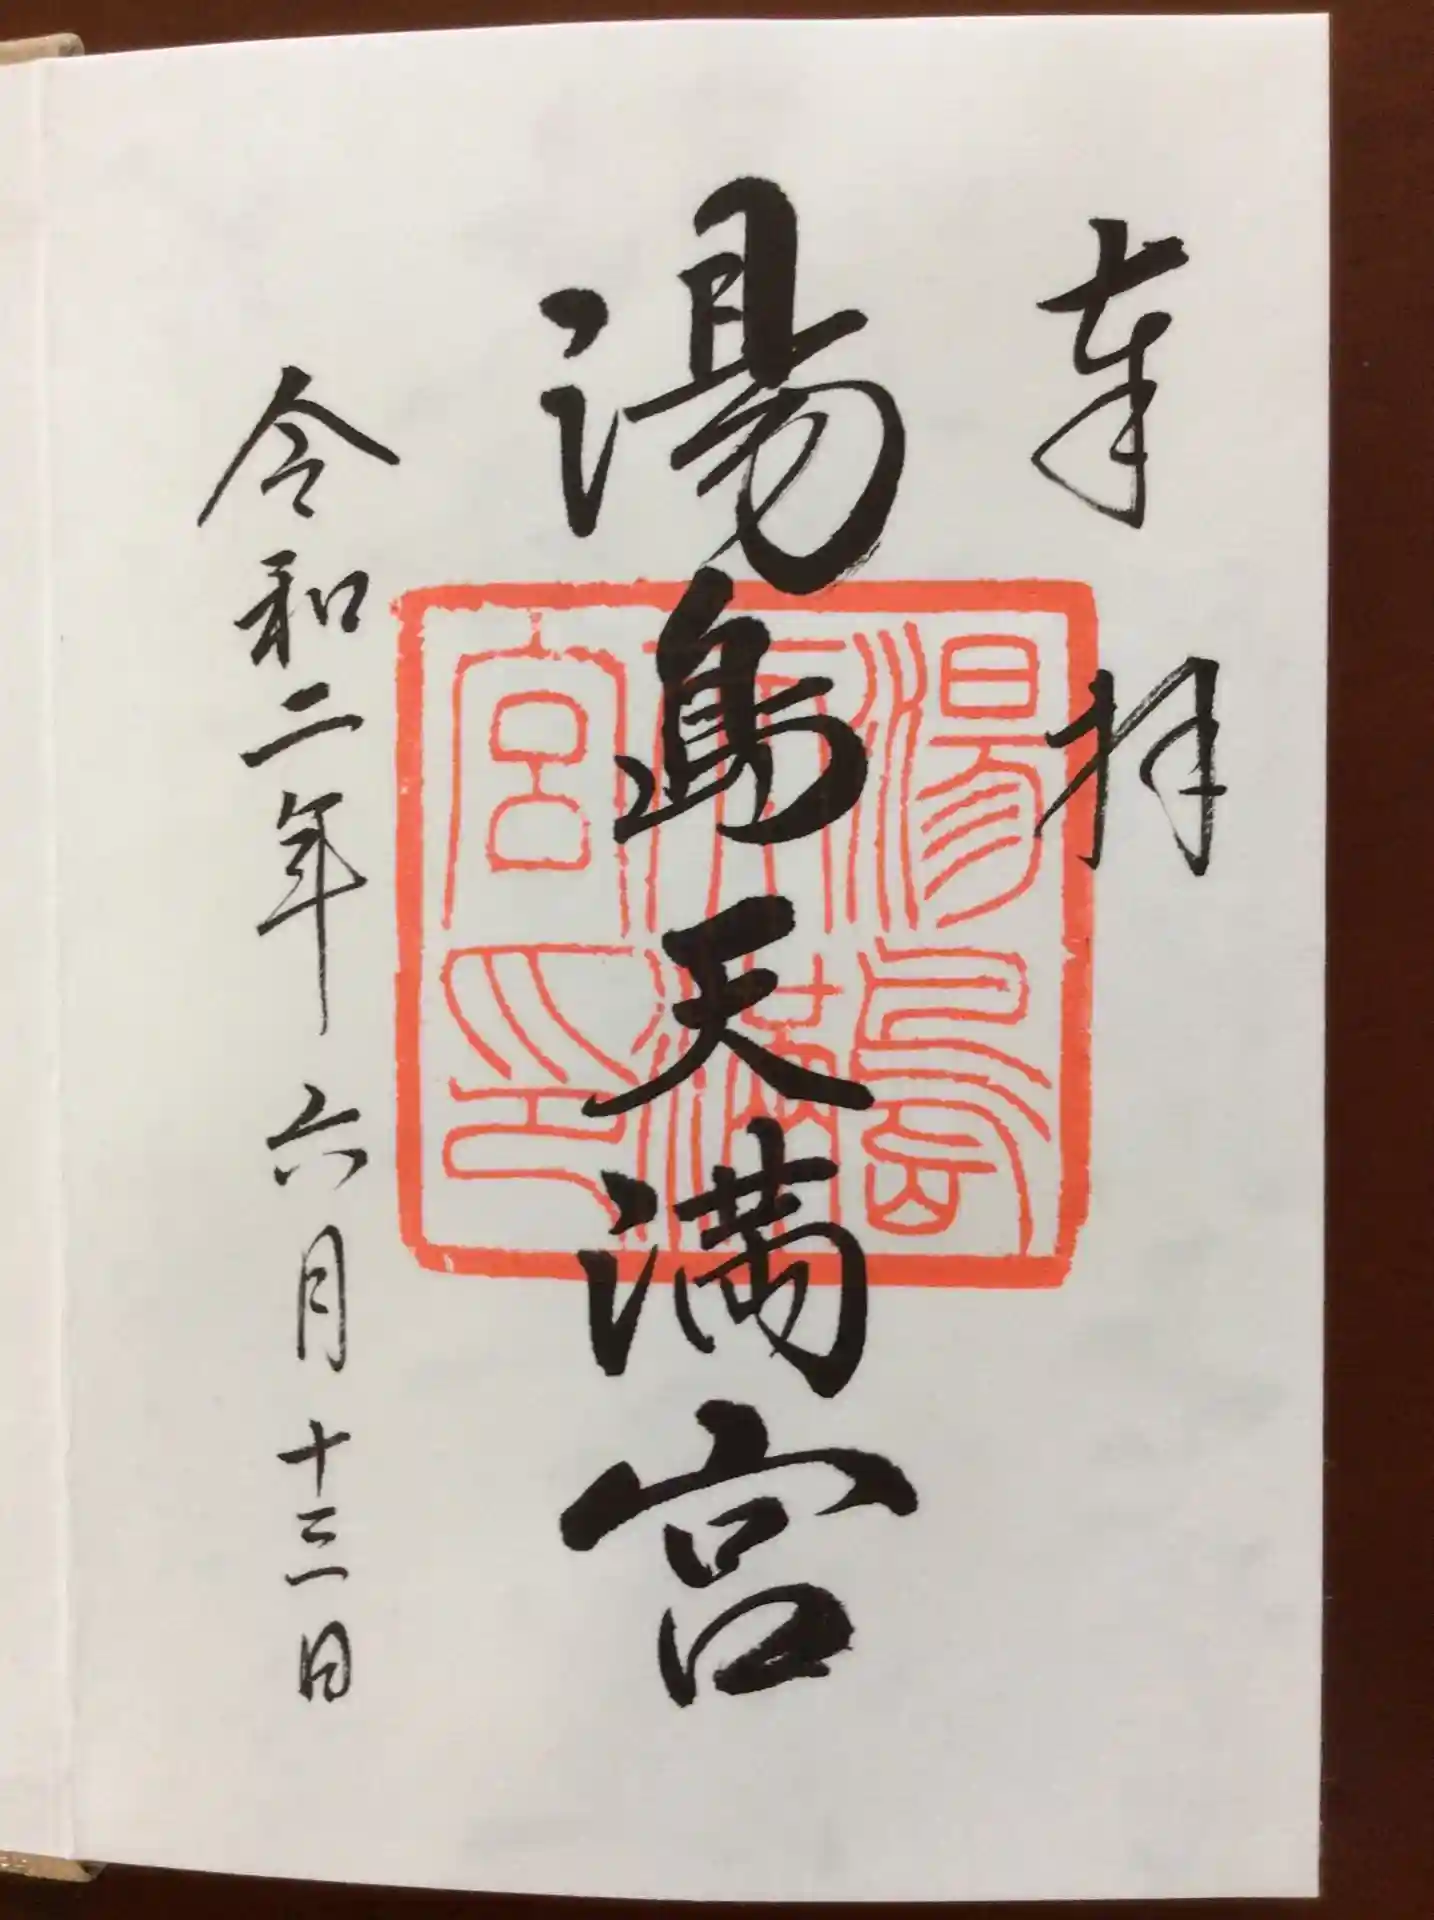 奉拝
湯島天満宮
湯島天満宮印
令和二年六月十三日